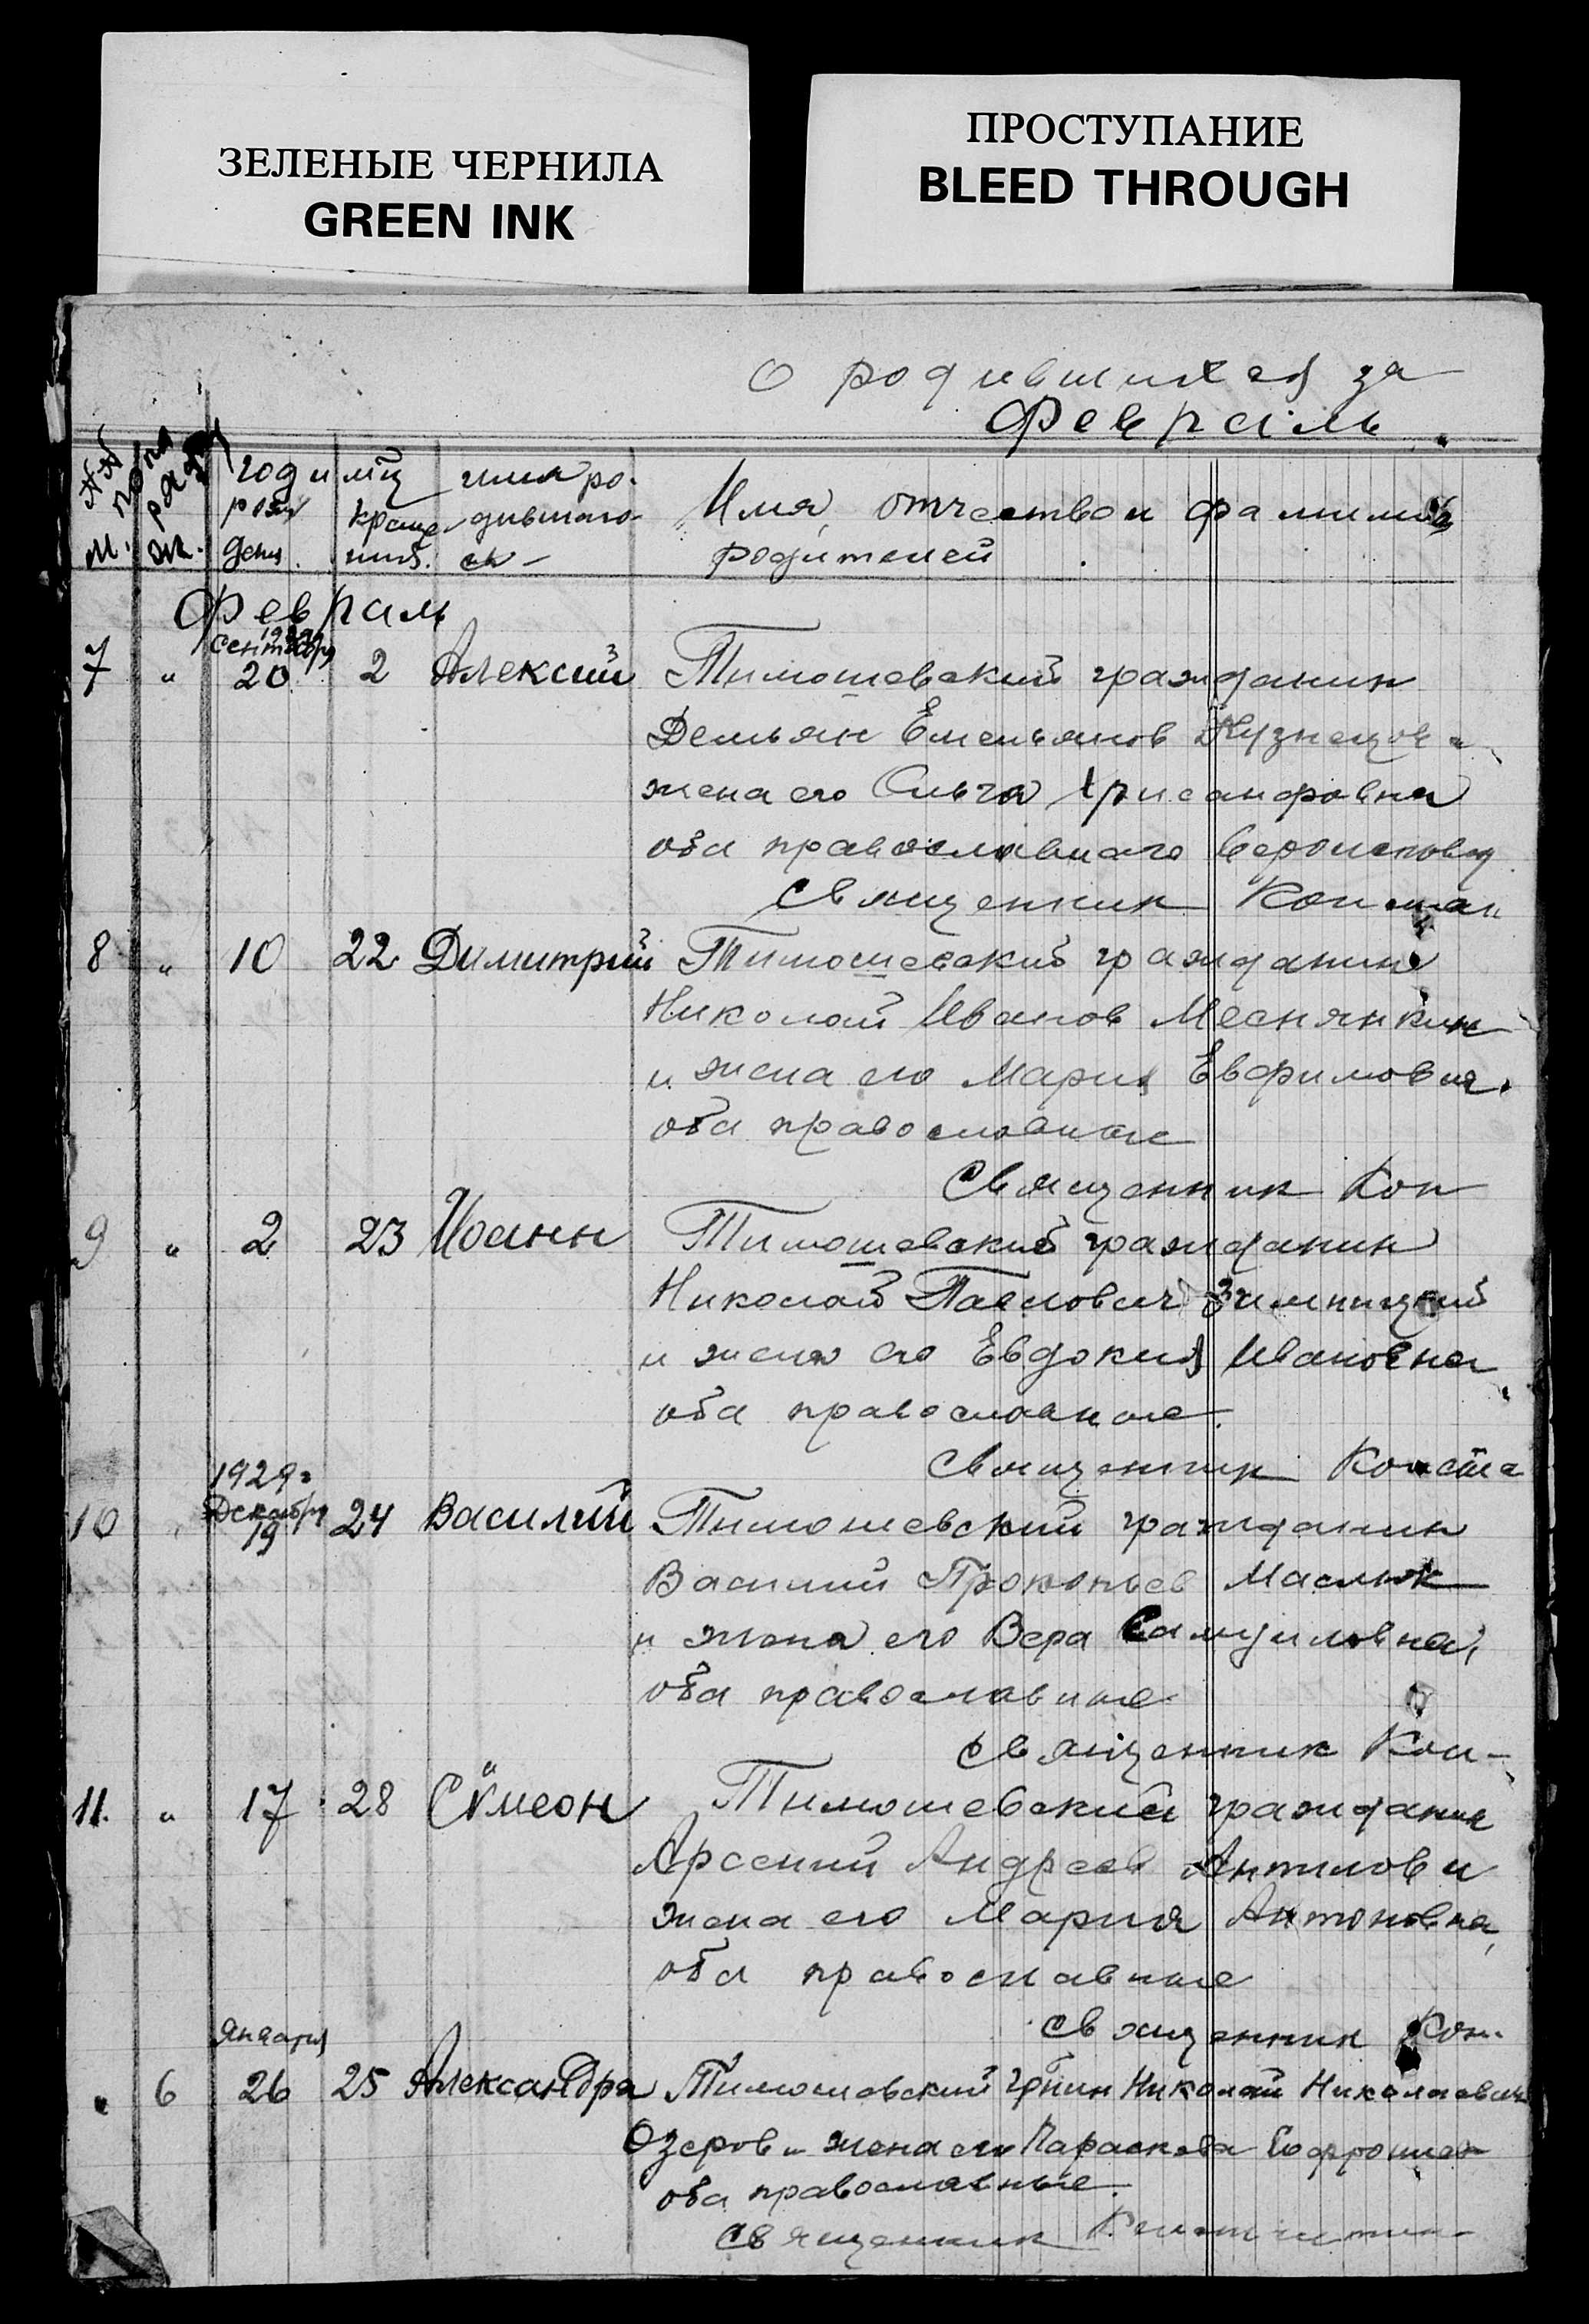 ЗЕЛЕНЫЕ ЧЕРНИЛА
GREEN INK
ПРОСТУПАНИЕ
BLEED THROUGH
О родившихся за
Февраль.
NN по порядку
м. ж.
год и м-ц
рожденя. крещения.
имя родившагося
Имя, отчество и фамилия
родителей
Февраль
7 " Сентября 20 2 Алексий Тимошевский гражданин
Демьян Емельянов Кузнецов и
жена его Ольга Хрисанфовна
оба православнаго вероисповед
Священник Констан
8 " 10 22 Димитрий Тимошевский гражданин
Николай Иванов Меснянкин
и жена его Мария Евфимовна.
оба православные
Священник Кон
9 " 2 23 Иоанн Тимошевский гражданин
Николай Павлович Зимницкий
и жена его Евдокия Ивановна
оба православные.
Священник Конста
10 " 1929 г Декабря 19 24 Василий Тимошевский гражданин
Василий Прокопьев Маслюк
и жена его Вера Самуиловна,
оба православные
Священник Кон-
11. " 17 28 Симеон Тимошевский гражданин
Арсений Андреев Антипов и
жена его Мария Антоновна,
оба православные
Священник Кон.
" 6 Января 26 25 Александра Тимошевский гр-нин Николай Николаевич
Озеров и жена его Параскева Софрониев
оба православные.
Священник Константин